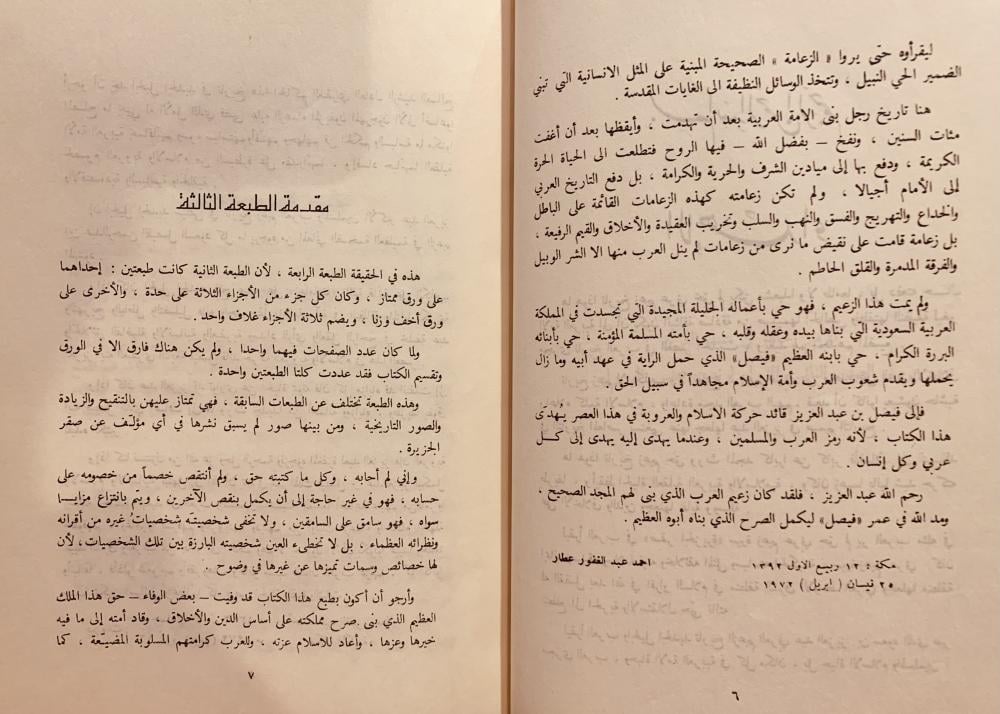 ليقرأوه حتى يروا « الزعامة » الصحيحة المبنية على المثل الانسانية التي تبني
الضمير الحي النبيل ، وتتخذ الوسائل النظيفة الى الغايات المقدسة .
هنا تاريخ رجل بنى الامة العربية بعد أن تهدمت ، وأيقظها بعد أن أغفت
مئات السنين ، ونفخ – بفضل الله – فيها الروح فتطلعت الى الحياة الحرة
الكريمة ، ودفع بها إلى ميادين الشرف والحرية والكرامة ، بل دفع التاريخ العربي
لمى الأمام أجيالا ، ولم تكن زعامته كهذه الزعامات القائمة على الباطل
والخداع والتهريج والفسق والنهب والسلب وتخريب العقيدة والأخلاق والقيم الرفيعة ،
بل زعامة قامت على نقيض ما نرى من زعامات لم ينل العرب منها الا الشر الوبيل
والفرقة المدمرة والقلق الحاطم .
ولم يمت هذا الزعيم ، فهو حي بأعماله الجليلة المجيدة التي تجسدت في المملكة
العربية السعودية التي بناها بيده وعقله وقلبه ، حي بأمته المسلمة المؤمنة ، حي بأبنائه
البررة الكرام ، حي بابنه العظيم «فيصل» الذي حمل الراية في عهد أبيه وما زال
يحملها ويقدم شعوب العرب وأمة الإسلام مجاهداً في سبيل الحق .
فإلى فيصل بن عبد العزيز قائد حركة الاسلام والعروبة في هذا العصر يُهدَى
هذا الكتاب ، لأنه رمز العرب والمسلمين ، وعندما يهدى إليه يهدى إلى كــل
عربي وكل إنسان .
رحم الله عبد العزيز ، فلقد كان زعيم العرب الذي بنى لهم المجد الصحيح ،
ومد الله في عمر «فيصل» ليكمل الصرح الذي بناه أبوه العظيم .
مكة : ١٢ ربيع الاول ١٣٩٢ احمد عبد الغفور عطار
٢٥ نيسان ( ابريل ) ١٩٧٢
٦
مقدمة الطبعة الثالثة
هذه في الحقيقة الطبعة الرابعة ، لأن الطبعة الثانية كانت طبعتين : إحداهما
على ورق ممتاز ، وكان كل جزء من الأجزاء الثلاثة على حدة ، والأخرى على
ورق أخف وزنا ، ويضم ثلاثة الأجزاء غلاف واحد .
ولما كان عدد الصفحات فيهما واحدا ، ولم يكن هناك فارق الا في الورق
وتقسيم الكتاب فقد عددت كلتا الطبعتين واحدة .
وهذه الطبعة تختلف عن الطبعات السابقة ، فهي تمتاز عليهن بالتنقيح والزيادة
والصور التاريخية ، ومن بينها صور لم يسبق نشرها في أي مؤلّف عن صقر
الجزيرة .
وإني لم أحابه ، وكل ما كتبته حق ، ولم أنتقص خصماً من خصومه على
حسابه ، فهو في غير حاجة إلى أن يكمل بنقص الآخرين ، ويتم بانتزاع مزايــا
سواه ، فهو سامق على السامقين ، ولا تخفى شخصيتَه شخصياتُ غيره من أقرانه
ونظرائه العظماء ، بل لا تخطىء العين شخصيته البارزة بين تلك الشخصيات، لأن
لها خصائص وسمات تميزها عن غيرها في وضوح .
وأرجو أن أكون بطبع هذا الكتاب قد وفيت – بعض الوفاء – حق هذا الملك
العظيم الذي بنى صرح مملكته على أساس الدين والأخلاق ، وقاد أمته إلى ما فيه
خيرها وعزها ، وأعاد للاسلام عزته ، وللعرب كرامتهم المسلوبة المضيّعة ، كما
٧